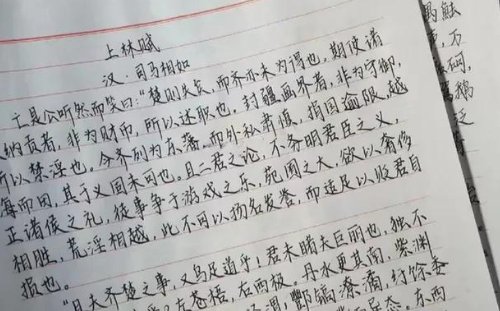 上林赋
汉·司马相如
亡是公听然而笑曰:“楚则失矣,而齐亦未为得也,期使诸
纳贡者,非为财币,所以述职也,封疆画界者,非为守御,
所以禁淫也。今齐列为东藩,而外私肃慎,捐国逾限,越
海而田,其于义固未可也。且二君之论,不务明君臣之义,
正诸侯之礼,徒事争于游戏之乐,苑囿之大,欲以奢侈
相胜,荒淫相越,此不可以扬名发誉,而适足以贬君自
损也。
“且夫齐楚之事,又乌足道乎!君未睹夫巨丽也,独不
左苍梧,右西极。丹水更其南,紫渊
酆镐潦潏,纡馀委
异态。东西
触
万
之